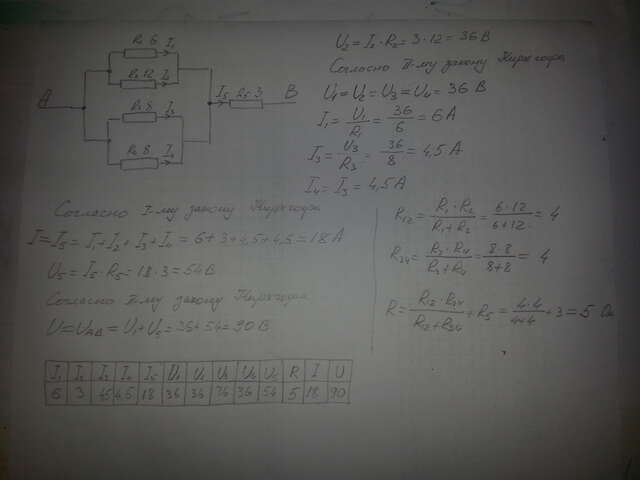 R₁ 6 I₁
R₂ 12 I₂
A
R₃ 8 I₃
I₅ R₅ 3 B
R₄ 8 I₄
U₂ = I₂ · R₂ = 3 · 12 = 36 В
Согласно II-му закону Кирхгофа
U₁ = U₂ = U₃ = U₄ = 36 В
I₁ = U₁/R₁ = 36/6 = 6 А
I₃ = U₃/R₃ = 36/8 = 4,5 А
I₄ = I₃ = 4,5 А
Согласно I-му закону Кирхгофа
I = I₅ = I₁ + I₂ + I₃ + I₄ = 6 + 3 + 4,5 + 4,5 = 18 А
U₅ = I₅ · R₅ = 18 · 3 = 54 В
Согласно II-му закону Кирхгофа
U = U_AB = U₁ + U₅ = 36 + 54 = 90 В
R₁₂ = R₁ · R₂/R₁ + R₂ = 6 · 12/6 + 12 = 4
R₃₄ = R₃ · R₄/R₃ + R₄ = 8 · 8/8 + 8 = 4
R = R₁₂ · R₃₄/R₁₂ + R₃₄ + R₅ = 4 · 4/4 + 4 + 3 = 5 Ом
I₁ I₂ I₃ I₄ I₅ U₁ U₂ U₃ U₄ U₅ R I U
6 3 4,5 4,5 18 36 36 36 36 54 5 18 90